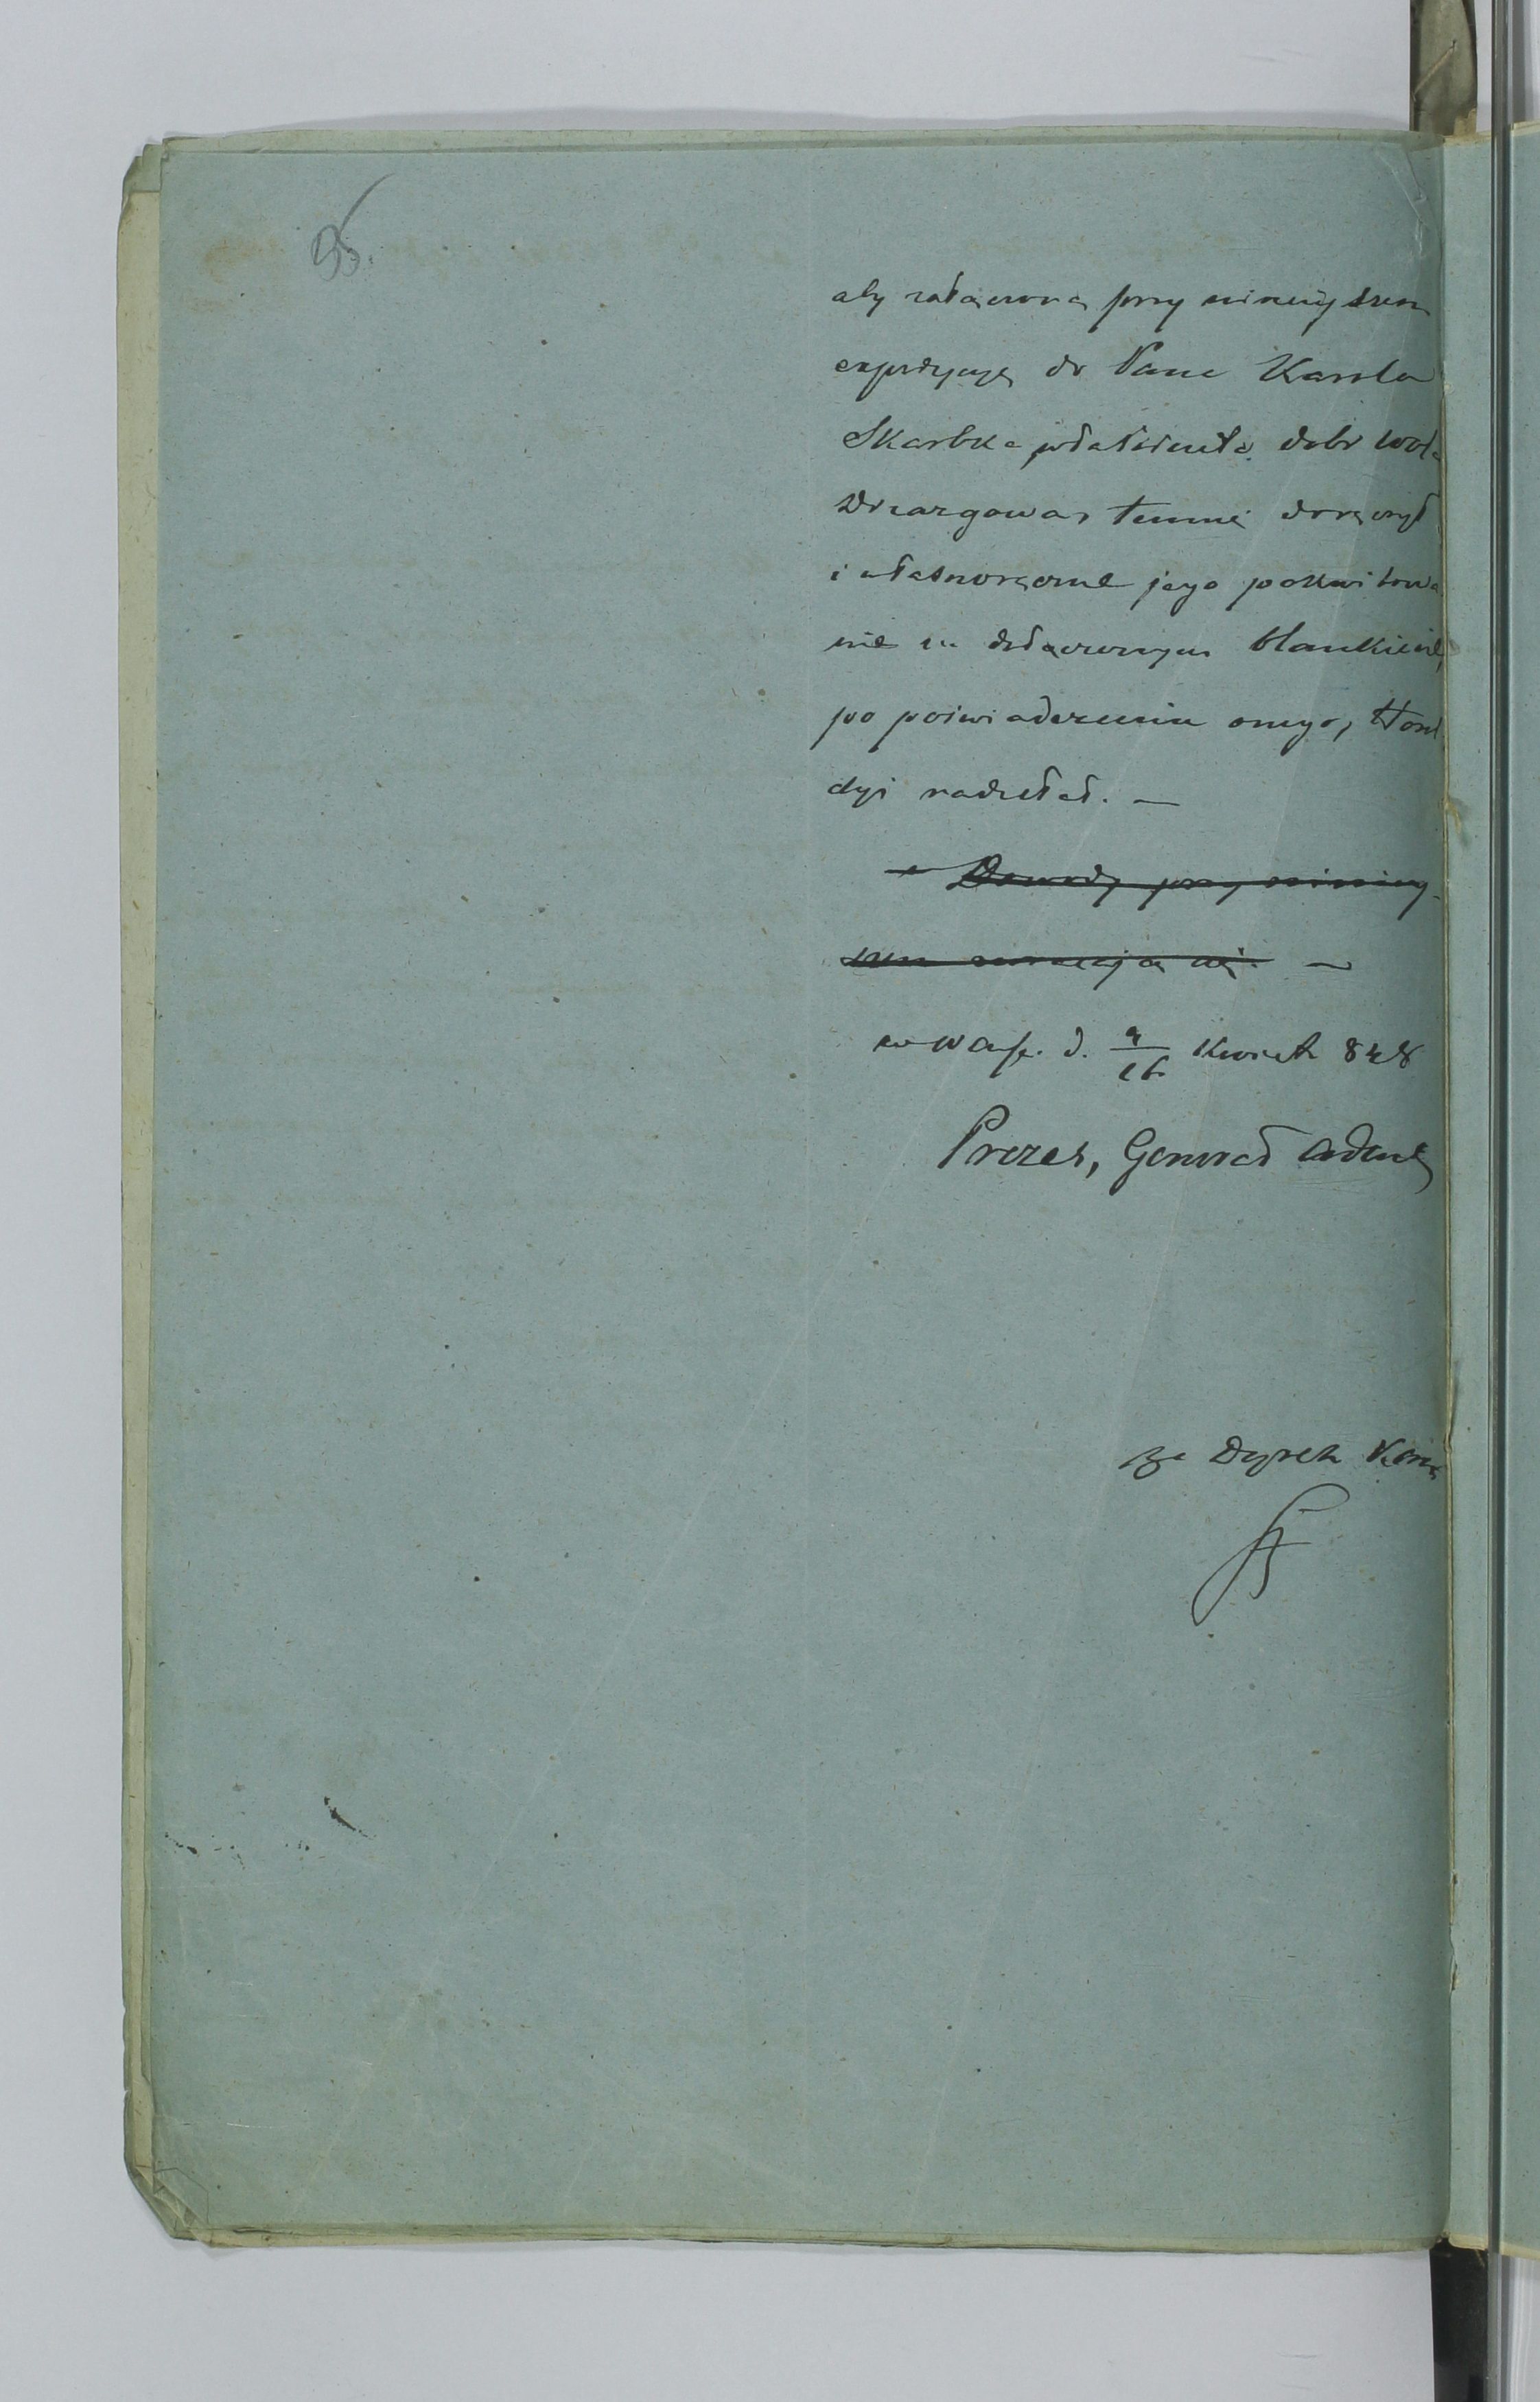 95.
aby załączoną przy niniejszem
expedycyą do Pana Karola
Skarbka właściciela dóbr Wola
Drzazgowa, temuż doręczył
i własnoręczne jego pokwitowa
nie na dołączonym blankiecie,
po poświadczeniu onego,
nadesłał. —
Dowody przy niniej-
szem się. —
w Wars. d. 4/16 Kwiet 848
Prezes, Generał Adjut
za Dyrek Kanc